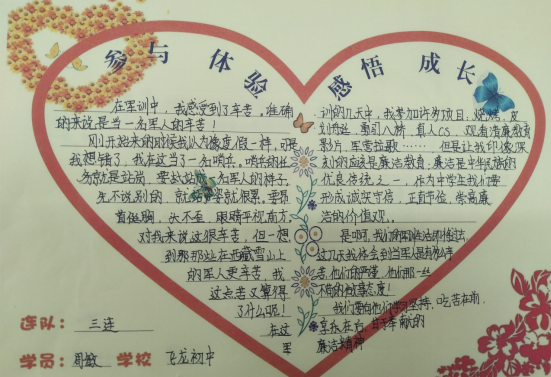 参与体验 感悟成长
在军训中，我感受到了辛苦。准确
的来说是当一名军人的辛苦！
刚开始来的时候我以为像度假一样，可是
我想错了，我在这当了一名哨兵。哨兵的任
务就是站岗，要站出军人的样子。
先不说别的，就站姿就很累。要昂
首挺胸，头不歪，眼睛平视前方
对我来说这很辛苦，但一想
到那那站在西藏雪山上
的军人更辛苦，我
这点苦又算得
了什么呢！
在这
军
训的几天中，我参加许多项目，烧烤，皮
划艇，勇引八桥，真人CS，观看清廉教育
影片，军营拉歌……但是让我印象深
刻的应该是廉洁教育，廉洁是中华民族的
优良传统之一，作为中学生我们要
形成诚实守信，正直节俭，崇高廉
洁的价值观。
是啊，我们的军训生活即将过去，
这几天我体会到当军人是有多么辛
苦，他们的严谨，他们那一丝
不苟的做事态度！
我们要向他们学习坚持，吃苦在前，
享乐在后，甘于奉献的
廉洁精神
连队：三连
学员：周敏 学校 飞龙初中